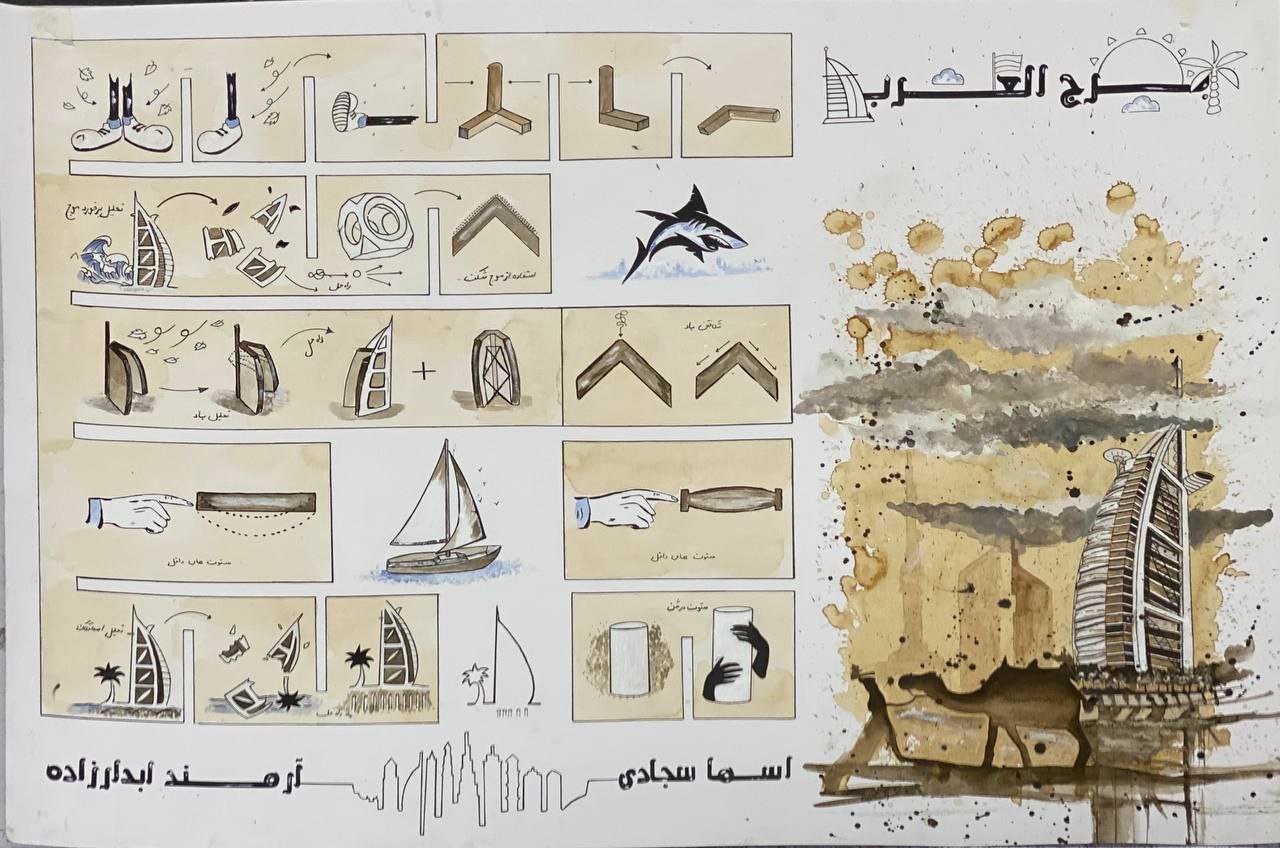 برج العرب
تحلیل برخورد موج
راه حل
استفاده از موج شکن
راه حل
باد
تحلیل باد
ستون های داخل
ستون های داخل
تحلیل
راه حل
ستون در شن
اسما سجادی
آرمند ابدارزاده